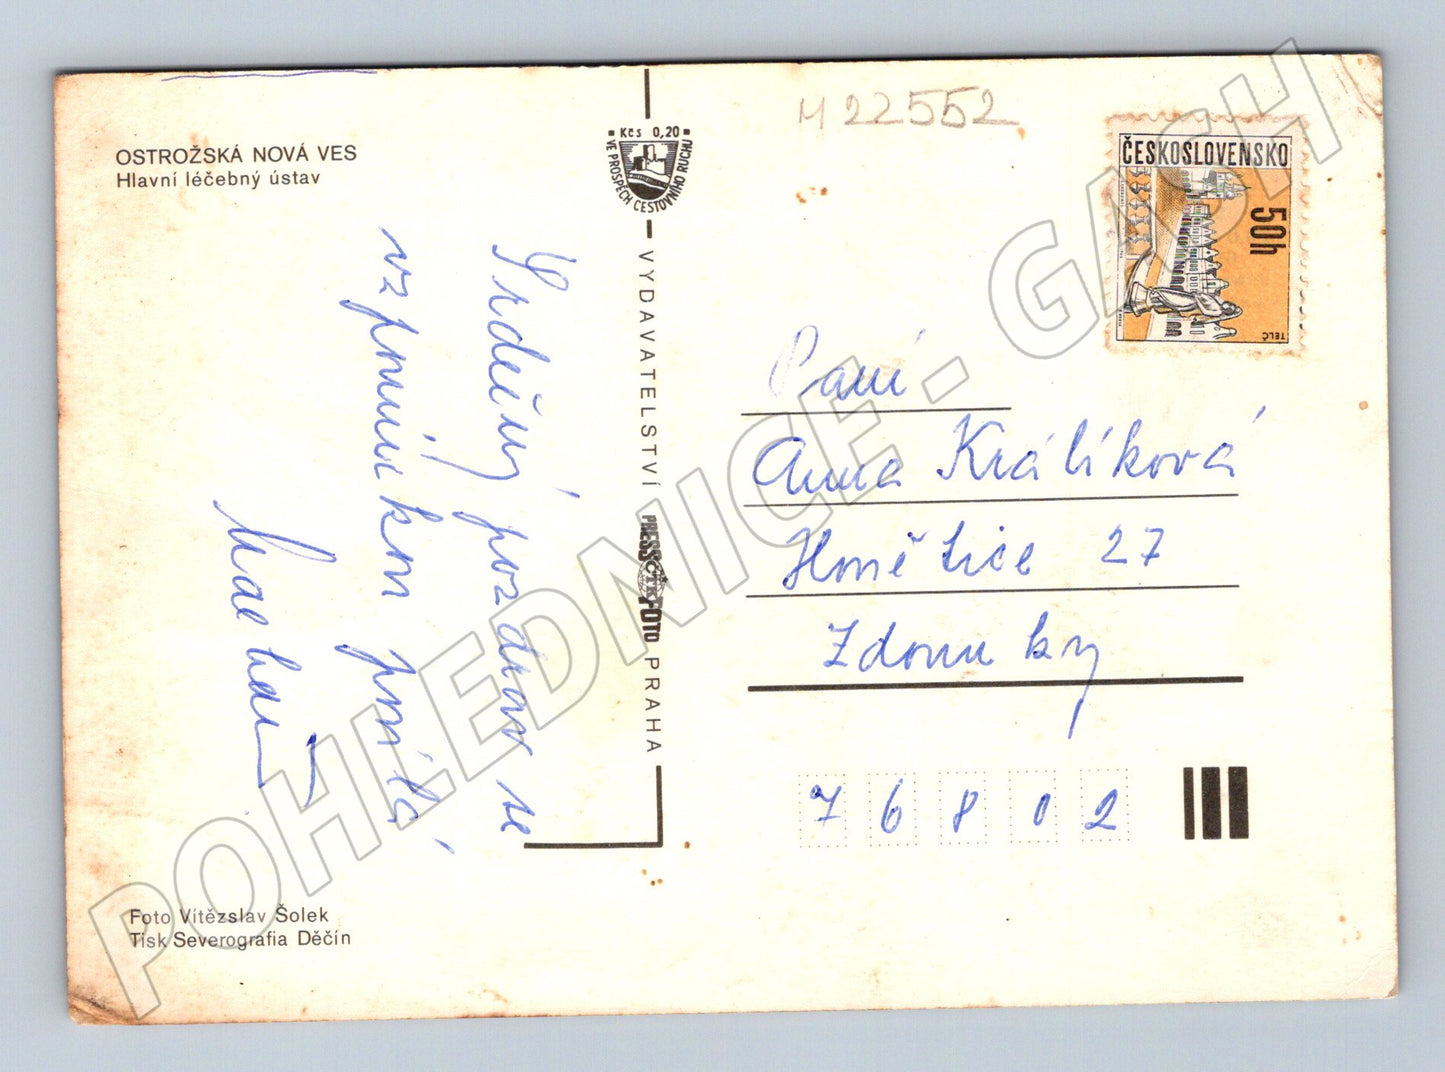 OSTROŽSKÁ NOVÁ VES
Hlavní léčebný ústav
Srdečný pozdrav se
vzpomínkou posílá
Foto Vítězslav Šolek
Tisk Severografia Děčín
Kčs 0,20
VE PROSPĚCH CESTOVNÍHO RUCHU
VYDAVATELSTVÍ PRESSFOTO PRAHA
ČTK
M 22552
ČESKOSLOVENSKO
50h
TELČ
Paní
Anna Králíková
Honětice 27
Zdounky
76802
POHLEDNICE - GASH